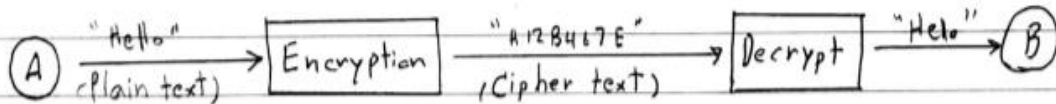 A "Hello" (Plain text) Encryption "A12B467E" (Cipher text) Decrypt "Helo" B